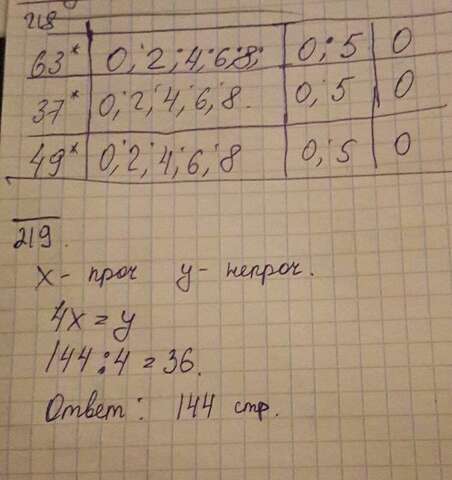 218
63* 0; 2; 4; 6; 8; 0; 5 0
37* 0; 2; 4; 6; 8. 0; 5 0
49* 0; 2; 4; 6; 8 0; 5 0
219.
x - проч y - непроч.
4x = y
144 : 4 = 36.
Ответ: 144 стр.